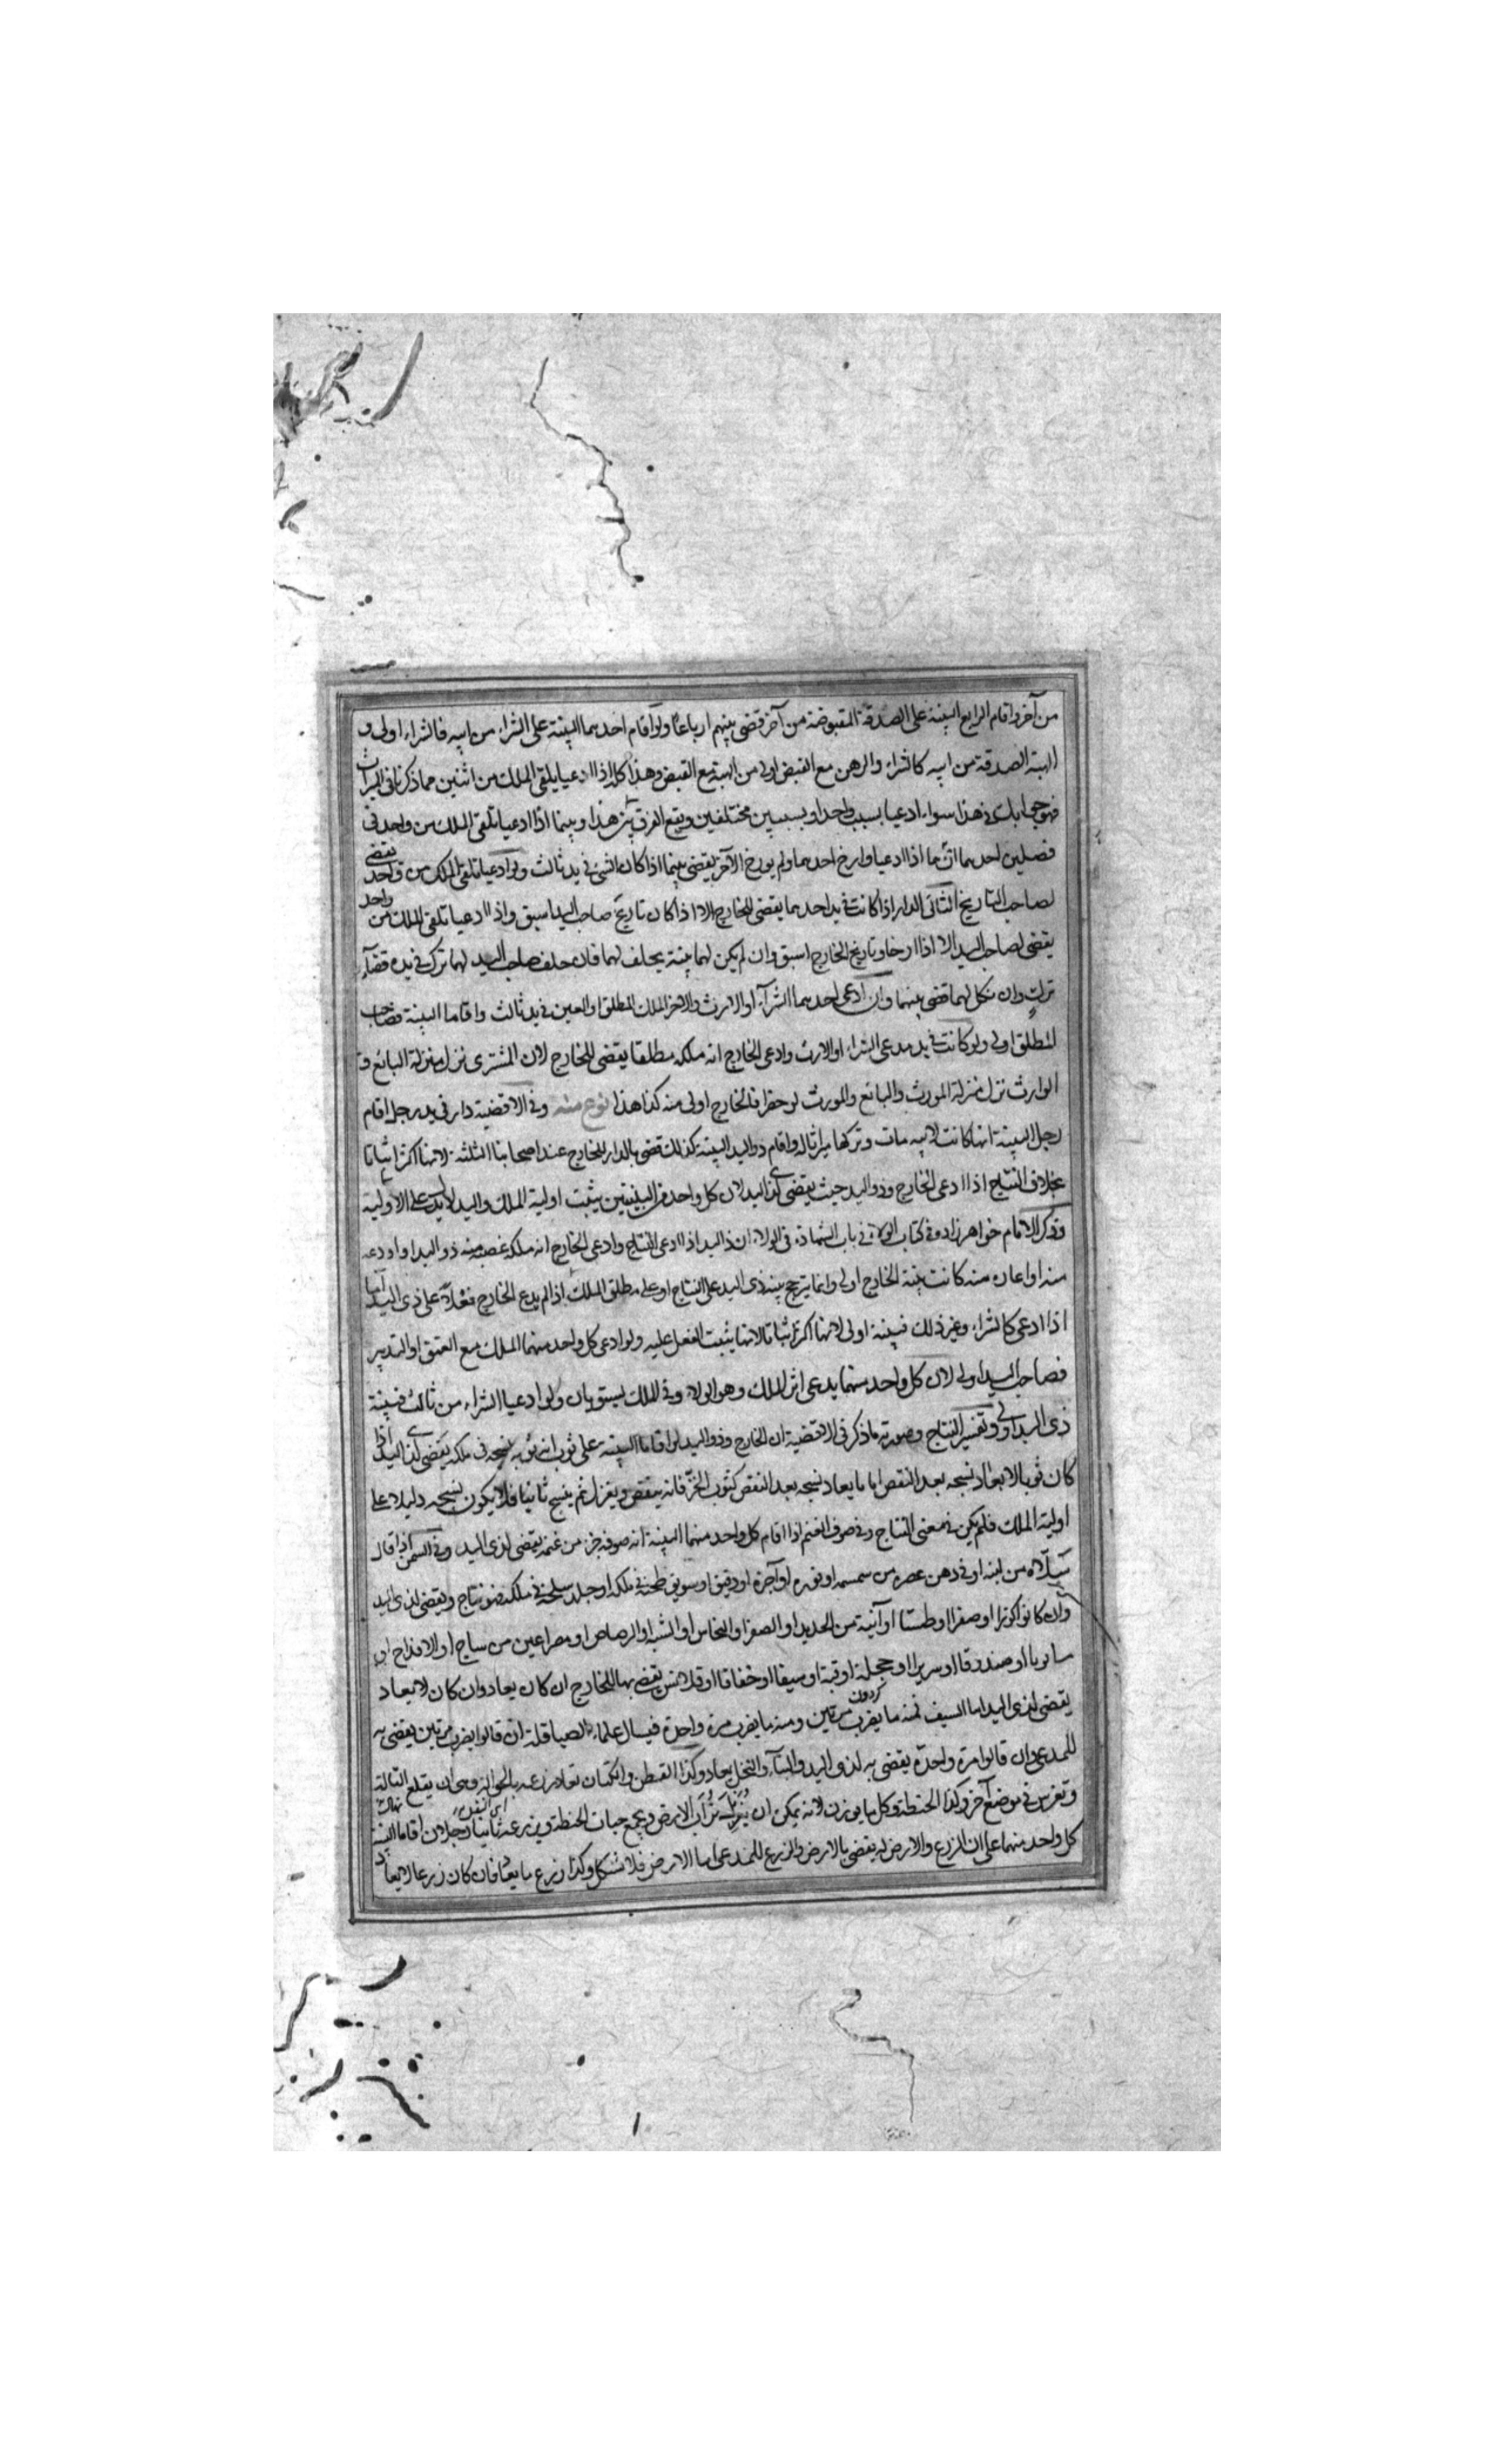 من آخر واقام الرابع البينة على الصدقة المقبوضة من آخر قضى بينهم ارباعا ولو اقام احدهما البينة على الشراء من ابيه فالشراء اولى و
الهبة الصدقة من ابيه كالشراء والرهن مع القبض اولى من الهبة مع القبض وهذا كله اذا ادعيا يلقى الملك من اثنين مما ذكرنا فى الميراث
فهو جوابك فى هذا سواء ادعيا بسبب واحد او بسببين مختلفين ويقع الفرق بين هذا وبينما اذا ادعيا تلقى الملك من واحد فى
فصلين احدهما انهما اذا ادعيا وارخ احدهما ولم يورخ الآخر يقضى بينهما اذا كان الشئ فى يد ثالث ولو ادعيا تلقى الملك من واحد يقضى
لصاحب التاريخ الثانى الدار اذا كانت فى يد احدهما يقضى للخارج الا اذا كان تاريخ صاحب اليد اسبق واذا ادعيا تلقى الملك من واحد
يقضى لصاحب اليد الا اذا ارخا وتاريخ الخارج اسبق وان لم يكن لهما بينة يحلف لهما فان حلف صاحب اليد لهما ترك فى يده قضآء
ترك وان نكل لهما قضى بينهما وان ادعى احدهما الشرآء او الارث والاخر الملك المطلق والعين فى يد ثالث واقاما البينة فصاحب
المطلق اولى ولو كانت فى يد مدعى الشراء او الارث وادعى الخارج انه ملكه مطلقا يقضى للخارج لان المشترى نزل منزلة البائع و
الوارث نزل منزلة المورث والبائع والمورث لو حضرا فالخارج اولى منه كذا هذا نوع منه وفى الاقضية دار فى يد رجل اقام
رجل البينة انها كانت لابيه مات وتركها ميراثا له واقام ذو اليد البينة كذلك قضى بالدار للخارج عند اصحابنا الثلثة لانها اكثر اثباتا
بخلاف النتاج اذا ادعى الخارج وذو اليد حيث يقضى لذى اليد لان كل واحد من البينتين يثبت اولية الملك واليد لا يدل على الاولية
وذكر الامام خواهر زاده فى كتاب الولاء فى باب الشهادة فى الولاء ان ذا اليد اذا ادعى النتاج وادعى الخارج انه ملكه غصبه منه ذو اليد او اودعه
منه او اعاره منه كانت بينة الخارج اولى وانما يترجح بينة ذى اليد على النتاج او على مطلق الملك اذا لم يدع الخارج فعلا على ذى اليد اما
اذا ادعى كالشراء وغير ذلك فبينته اولى لانها اكثر اثباتا لانها يثبت الفعل عليه ولو ادعى كل واحد منهما الملك مع العتق او التدبير
فصاحب اليد اولى لان كل واحد منهما يدعى اثر الملك وهو الولاء وفى الملك يستويان ولو ادعيا الشراء من ثالث فبينة
ذى اليد اولى وتفسير النتاج وصورته ما ذكر فى الاقضية ان الخارج وذو اليد لو اقاما البينة على ثوب انه ثوبه نسجه فى ملكه يقضى لذى اليد اذا
كان ثوبا لا يعاد نسجه بعد النقض اما ما يعاد نسجه بعد النقض كثوب الخز فانه ينقض ويغزل ثم ينسج ثانيا فلا يكون نسجه دليلا على
اولية الملك فلم يكن فى معنى النتاج وفى صوف الغنم اذا اقام كل واحد منهما البينة انه صوفه جز من غنمه يقضى لذى اليد وفى السمن اذا قال
سلاه من لبنه او فى دهن عصره من سمسمه او نوره او آجره او دقيق او سويق طحنه فى ملكه او جلد سلخه فى ملكه فهو نتاج ويقضى لذى اليد
وان كانوا كوزا او صفرا او طستا او آنية من الحديد او الصفر او النحاس او الشبه او الرصاص او مصراعين من ساج او الاقداح او
او صندوقا او سريرا او حجلة او قبة او سيفا او خفافا او قلانس يقضى بها للخارج ان كان يعاد وان كان لا يعاد
يقضى لذى اليد اما السيف فمنه ما يضرب مرتين ومنه ما يضرب مرة واحدة فيسال علماء الصياقلة ان قالوا يضرب مرتين يقضى به
للمدعى وان قالوا مرة واحدة يقضى به لذى اليد والبنآء والنخل يعاد وكذا القطن والكتان يعاد زرعه وهى ان يقلع التالة
وتغرس فى موضع آخر وكذا الحنطة وكل ما يوزن لانه يمكن ان يغربل تراب الارض ويجمع حبات الحنطة ويزرعه ثانيا رجلان اقاما البينة
كل واحد منهما على ان الزرع والارض له يقضى بالارض والزرع للمدعى اما الارض فلا تشكل وكذا زرع ما يعاد فان كان زرعا لا يعاد